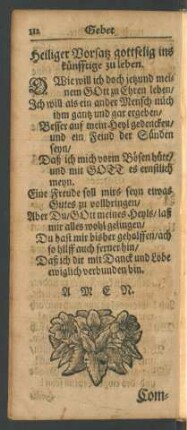 282 Gebet
Heiliger Vorsatz gottselig ins
künfftige zu leben.
O Wie will ich doch jetzund mei-
nem GOtt zu Ehren leben/
Ich will als ein ander Mensch mich
ihm gantz und gar ergeben/
Besser auf mein Heyl gedencken/
und ein Feind der Sünden
seyn/
Daß ich mich vorm Bösen hüte/
und mit GOTT es ernstlich
meyn.
Eine Freude soll mirs seyn etwas
Gutes zu vollbringen/
Aber Du/GOtt meines Heyls/laß
mir alles wohl gelingen/
Du hast mir bißher geholffen/ach
so hilff auch fernerhin/
Daß ich dir mit Danck und Lobe
ewiglich verbunden bin.
A M E N.
Com-